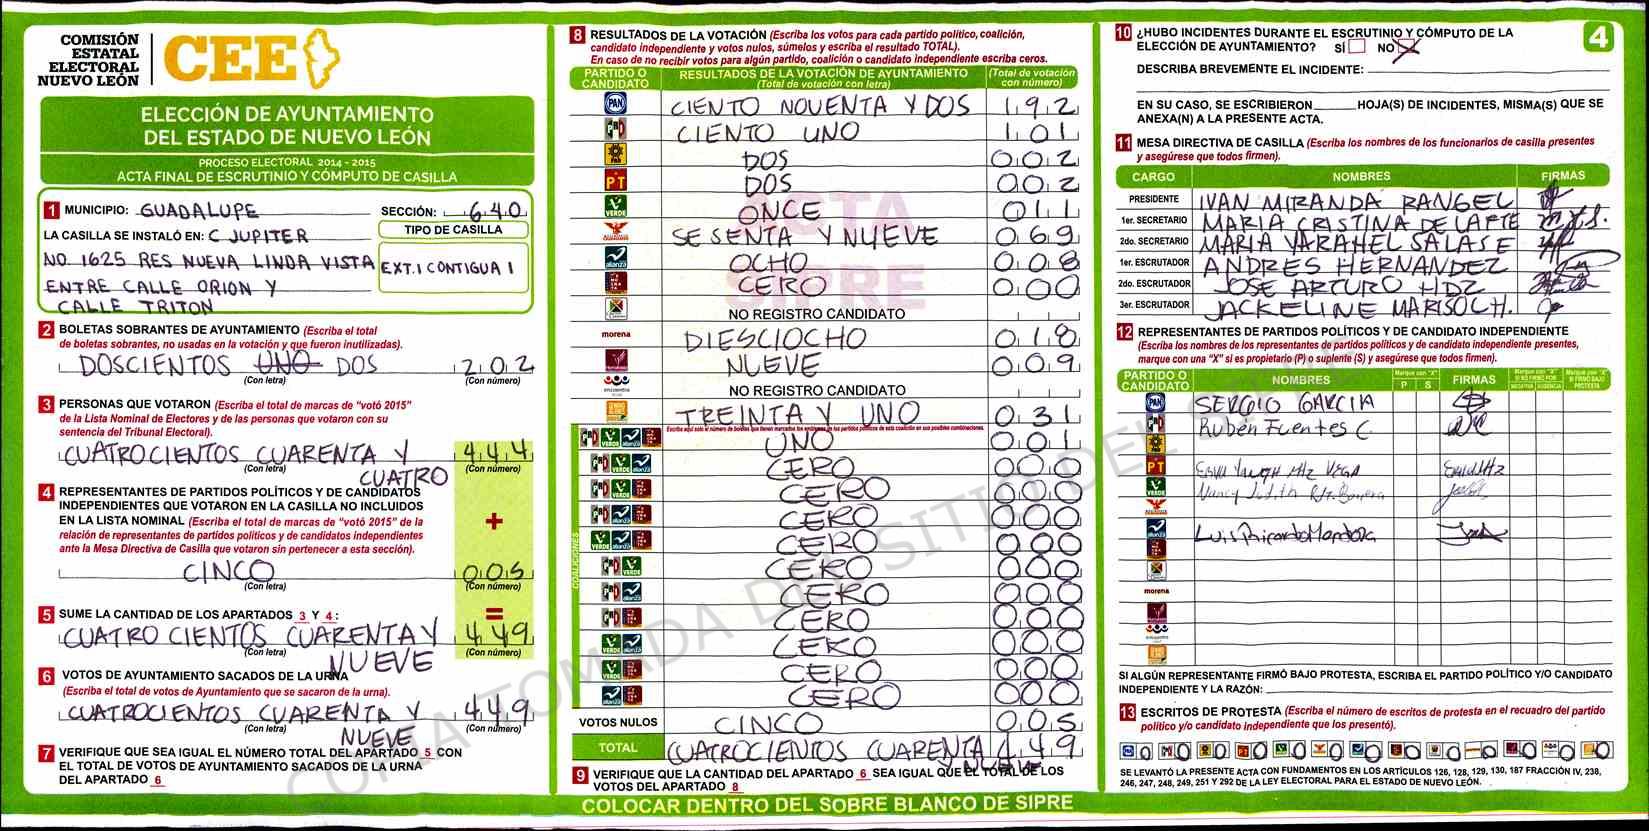 COMISIÓN
ESTATAL
ELECTORAL
NUEVO LEÓN
CEE
ELECCIÓN DE AYUNTAMIENTO
DEL ESTADO DE NUEVO LEÓN
PROCESO ELECTORAL 2014 - 2015
ACTA FINAL DE ESCRUTINIO Y CÓMPUTO DE CASILLA
1 MUNICIPIO: GUADALUPE SECCIÓN: 640
LA CASILLA SE INSTALÓ EN: C JUPITER TIPO DE CASILLA
NO. 1625 RES NUEVA LINDA VISTA EXT.1 CONTIGUA 1
ENTRE CALLE ORION Y
CALLE TRITON
2 BOLETAS SOBRANTES DE AYUNTAMIENTO (Escriba el total
de boletas sobrantes, no usadas en la votación y que fueron inutilizadas).
DOSCIENTOS UNO DOS 202
(Con letra) (Con número)
3 PERSONAS QUE VOTARON (Escriba el total de marcas de “votó 2015”
de la Lista Nominal de Electores y de las personas que votaron con su
sentencia del Tribunal Electoral).
CUATROCIENTOS CUARENTA Y 444
(Con letra) CUATRO (Con número)
4 REPRESENTANTES DE PARTIDOS POLÍTICOS Y DE CANDIDATOS
INDEPENDIENTES QUE VOTARON EN LA CASILLA NO INCLUIDOS
EN LA LISTA NOMINAL (Escriba el total de marcas de “votó 2015” de la
relación de representantes de partidos políticos y de candidatos independientes
ante la Mesa Directiva de Casilla que votaron sin pertenecer a esta sección).
+
CINCO 005
(Con letra) (Con número)
5 SUME LA CANTIDAD DE LOS APARTADOS 3 Y 4 : =
CUATRO CIENTOS CUARENTA Y 449
(Con letra) NUEVE (Con número)
6 VOTOS DE AYUNTAMIENTO SACADOS DE LA URNA
(Escriba el total de votos de Ayuntamiento que se sacaron de la urna).
CUATROCIENTOS CUARENTA Y 449
(Con letra) NUEVE (Con número)
7 VERIFIQUE QUE SEA IGUAL EL NÚMERO TOTAL DEL APARTADO 5 CON
EL TOTAL DE VOTOS DE AYUNTAMIENTO SACADOS DE LA URNA
DEL APARTADO 6
8 RESULTADOS DE LA VOTACIÓN (Escriba los votos para cada partido político, coalición,
candidato independiente y votos nulos, súmelos y escriba el resultado TOTAL).
En caso de no recibir votos para algún partido, coalición o candidato independiente escriba ceros.
PARTIDO O CANDIDATO RESULTADOS DE LA VOTACIÓN DE AYUNTAMIENTO (Total de votación con letra) (Total de votación con número)
PAN CIENTO NOVENTA Y DOS 192
PRI CIENTO UNO 101
PRD DOS 002
PT DOS 002
VERDE ONCE 011
SESENTA Y NUEVE 069
alianza OCHO 008
CERO 000
NO REGISTRO CANDIDATO
morena DIESCIOCHO 018
NUEVE 009
encuentro NO REGISTRO CANDIDATO
TREINTA Y UNO 031
Escriba aquí solo el número de boletas que tienen marcados los emblemas de los partidos políticos de esta coalición en sus posibles combinaciones.
COALICIONES
UNO 001
CERO 000
CERO 000
CERO 000
CERO 000
CERO 000
CERO 000
CERO 000
CERO 000
CERO 000
CERO 000
VOTOS NULOS CINCO 005
TOTAL CUATROCIENTOS CUARENTA 449
Y NUEVE
9 VERIFIQUE QUE LA CANTIDAD DEL APARTADO 6 SEA IGUAL QUE EL TOTAL DE LOS
VOTOS DEL APARTADO 8
COLOCAR DENTRO DEL SOBRE BLANCO DE SIPRE
ACTA
SIPRE
COPIA TOMADA DEL SITIO DEL SIPRE
10 ¿HUBO INCIDENTES DURANTE EL ESCRUTINIO Y CÓMPUTO DE LA
ELECCIÓN DE AYUNTAMIENTO? SÍ NO X
4
DESCRIBA BREVEMENTE EL INCIDENTE:
EN SU CASO, SE ESCRIBIERON HOJA(S) DE INCIDENTES, MISMA(S) QUE SE
ANEXA(N) A LA PRESENTE ACTA.
11 MESA DIRECTIVA DE CASILLA (Escriba los nombres de los funcionarios de casilla presentes
y asegúrese que todos firmen).
CARGO NOMBRES FIRMAS
PRESIDENTE IVAN MIRANDA RANGEL
1er. SECRETARIO MARIA CRISTINA DE LAFTE
2do. SECRETARIO MARIA YARAHEL SALASE
1er. ESCRUTADOR ANDRES HERNANDEZ
2do. ESCRUTADOR JOSE ARTURO HDZ
3er. ESCRUTADOR JACKELINE MARISOCH.
12 REPRESENTANTES DE PARTIDOS POLÍTICOS Y DE CANDIDATO INDEPENDIENTE
(Escriba los nombres de los representantes de partidos políticos y de candidato independiente presentes,
marque con una “X” si es propietario (P) o suplente (S) y asegúrese que todos firmen).
PARTIDO O CANDIDATO NOMBRES Marque con “X” P S FIRMAS Marque con “X” SI NO FIRMÓ POR: NEGATIVA AUSENCIA Marque con “X” SI FIRMÓ BAJO PROTESTA
PAN SERGIO GARCIA
PRI Rubén Fuentes C.
PRD
PT MTZ VEGA
VERDE Nancy Judith
alianza Luis Ricardo Mendoza
morena
encuentro
SI ALGÚN REPRESENTANTE FIRMÓ BAJO PROTESTA, ESCRIBA EL PARTIDO POLÍTICO Y/O CANDIDATO
INDEPENDIENTE Y LA RAZÓN:
13 ESCRITOS DE PROTESTA (Escriba el número de escritos de protesta en el recuadro del partido
político y/o candidato independiente que los presentó).
0 0 0 0 0 0 0 0 0 0 0 0 0
SE LEVANTÓ LA PRESENTE ACTA CON FUNDAMENTOS EN LOS ARTÍCULOS 126, 128, 129, 130, 187 FRACCIÓN IV, 238,
246, 247, 248, 249, 251 Y 292 DE LA LEY ELECTORAL PARA EL ESTADO DE NUEVO LEÓN.